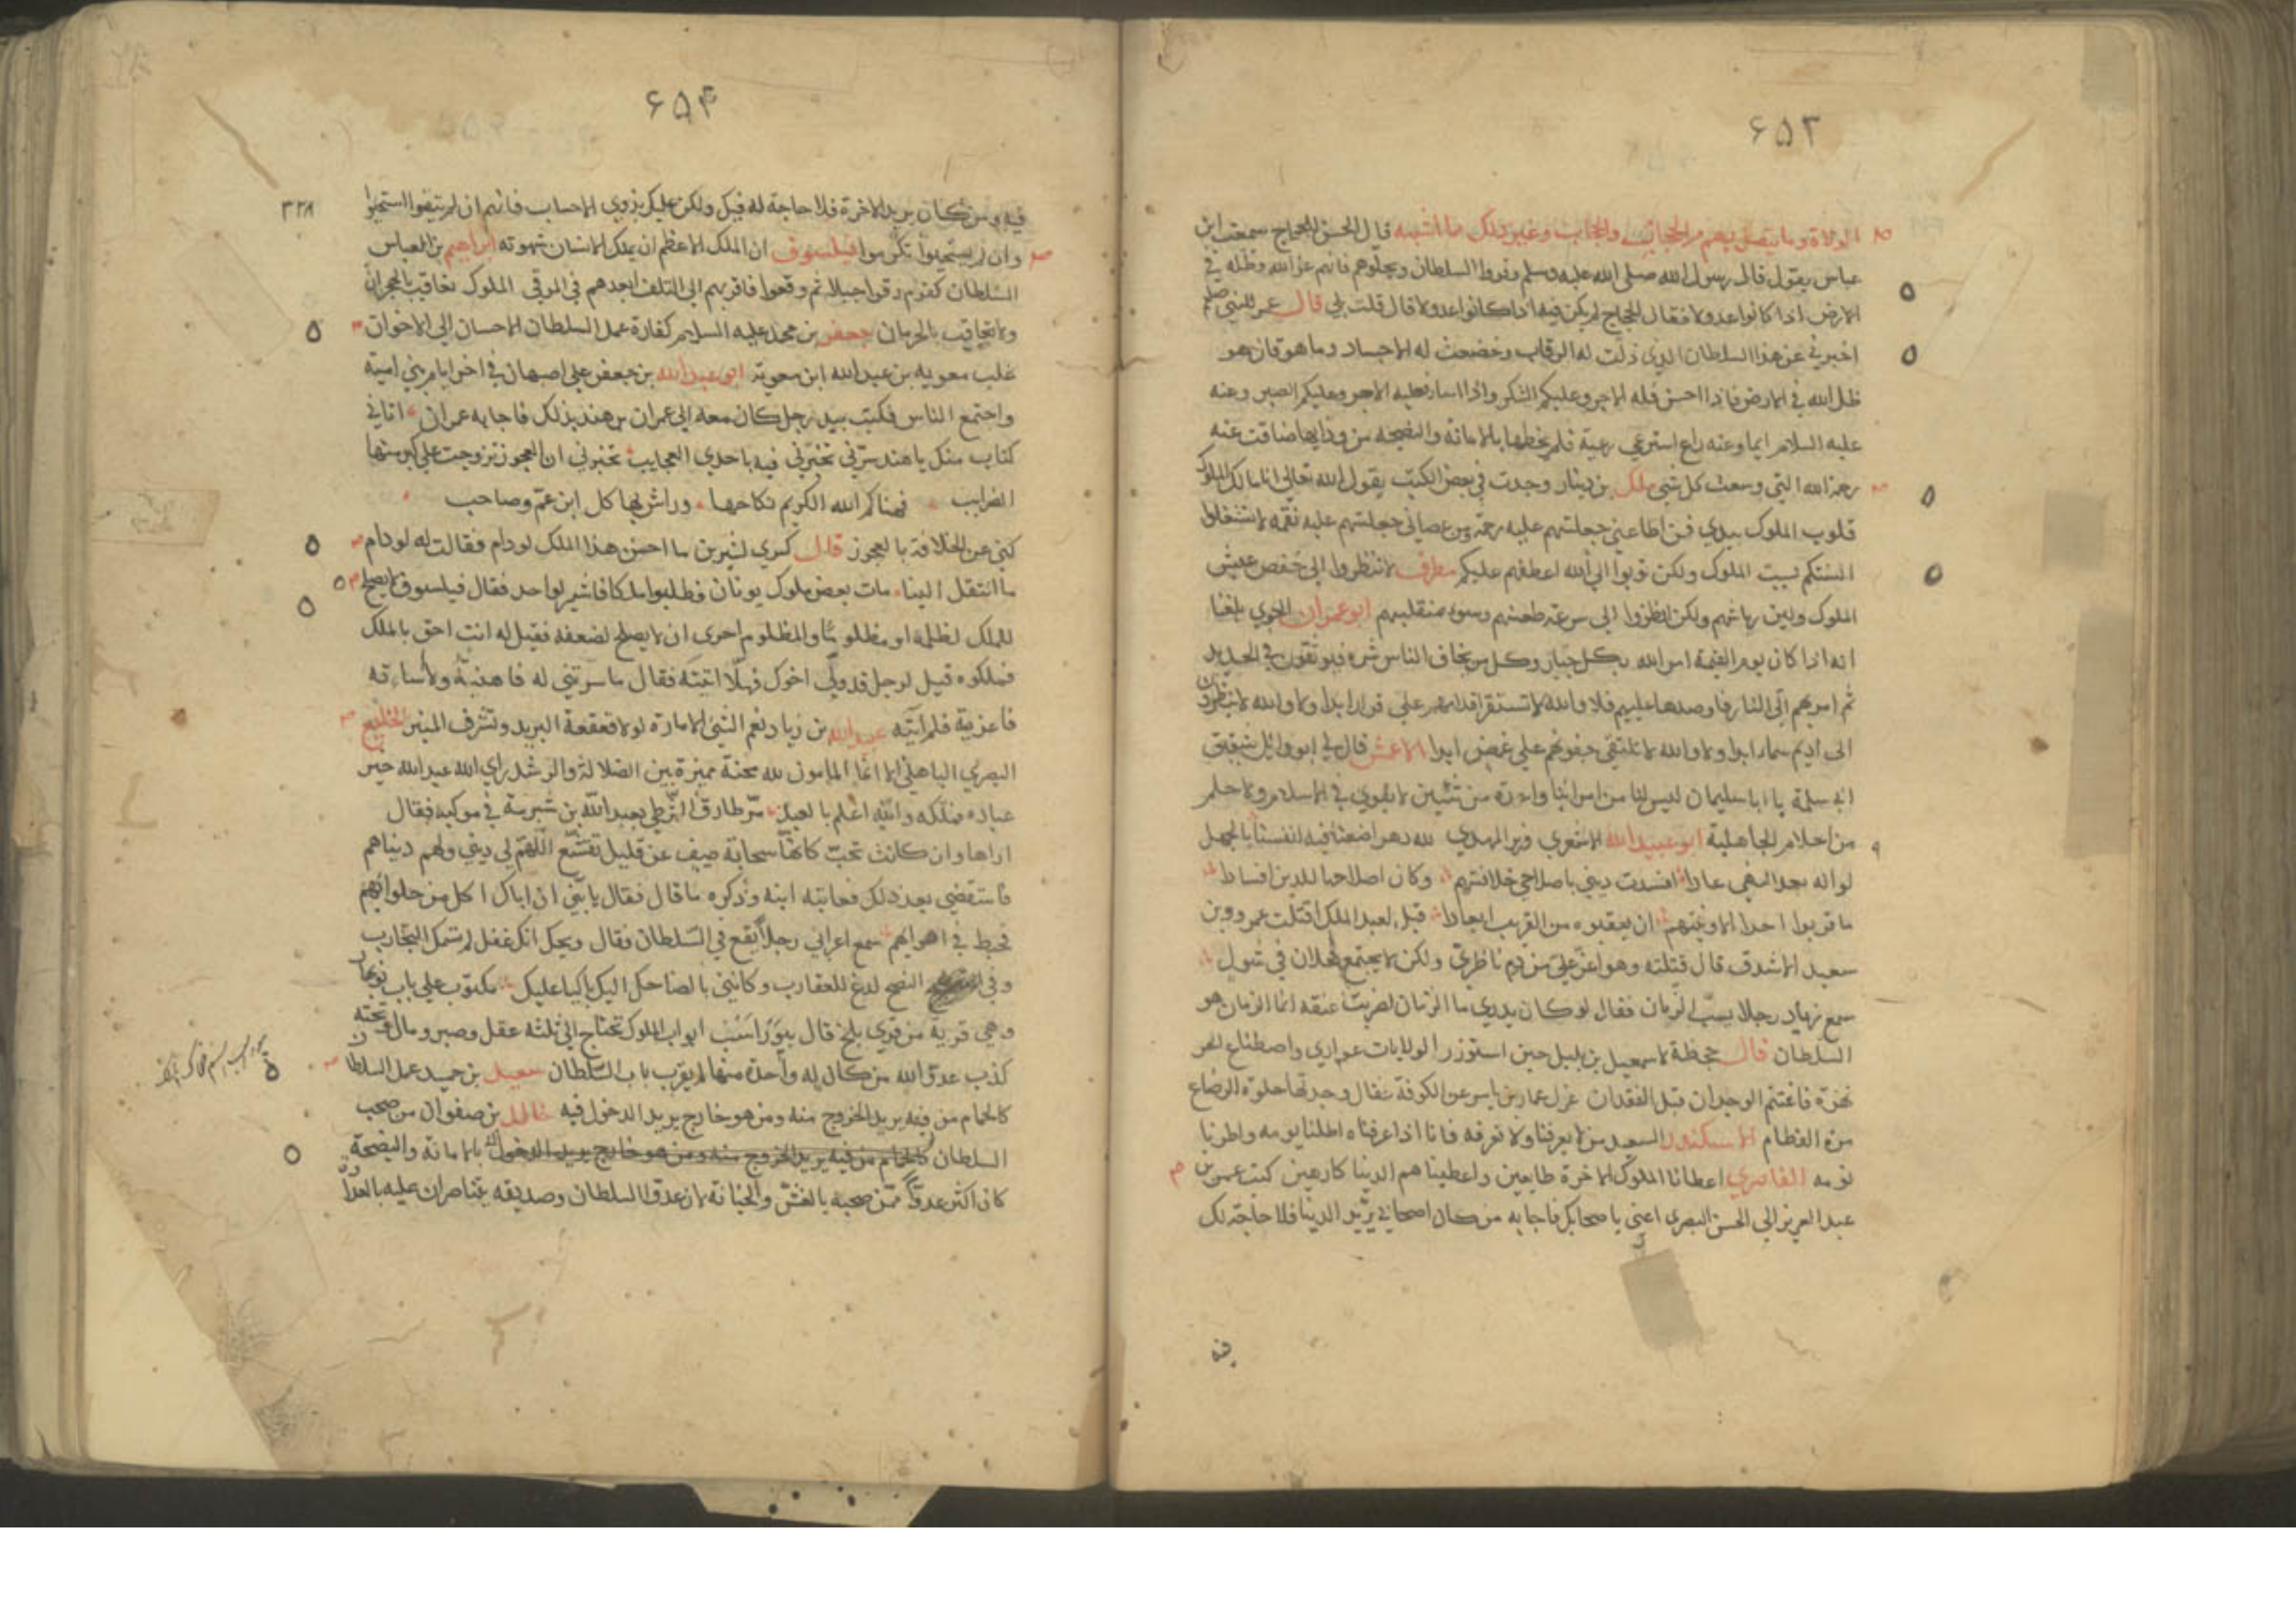 ۶۵۳
الولاة وما يتصل بهم من الحجابة والحجاب وغير ذلك مما اشبهه قال الحسن للحجاج سمعت ابن
عباس يقول قال رسول الله صلى الله عليه وسلم وقروا السلطان وبجلوهم فانهم عز الله وظله في
الارض اذا كانوا عدولا فقال الحجاج لم يكن فيها اذا كانوا عدولا قال قلت بلى قال عمر للنبي صلعم
اخبرني عن هذا السلطان الذي ذلت له الرقاب وخضعت له الاجساد وما هو قال هو
ظل الله في الارض فاذا احسن فله الاجر وعليكم الشكر واذا اساء فعليه الاصر وعليكم الصبر وعنه
عليه السلام ايما وعنه راع استرعي رعية فلم يحطها بالامانة والنصيحة من ورايها ضاقت عنه
رحمة الله التي وسعت كل شي ملك بن دينار وجدت في بعض الكتب يقول الله تعالى انا مالك الملوك
قلوب الملوك بيدي فمن اطاعني جعلتهم عليه رحمة ومن عصاني جعلتهم عليه نقمه لا تشغلوا
السنتكم بسب الملوك ولكن توبوا الى الله اعطفهم عليكم مطرف لا تنظروا الى خفض عيش
الملوك ولين رياشهم ولكن انظروا الى سرعة ظعنهم وسوء منقلبهم ابو عمران الجوني بلغنا
انه اذا كان يوم القيمة امر الله بكل جبار وكل من يخاف الناس شره فيوثقون في الحديد
ثم امر بهم الى النار فاوصدها عليهم فلا والله لا تستقر اقدامهم على قرار ابدا ولا والله لا ينظرون
الى اديم سماء ابدا ولا والله لا تلتقي جفونهم على غمض ابدا الاعمش قال لي ابو وائل شقيق
ابن سلمة يا ابا سليمان ليس لنا من امرائنا واحدة من ثنتين لا تقوى في الاسلام ولا حلم
من احلام الجاهلية ابو عبيد الله الاشعري وزير المهدي لله دهر اضعنا فيه انفسنا بالجهل
لو انه بعد النهى عادا افسدت ديني باصلاحي خلافتهم وكان اصلاحها للدين افسادا
ما قربوا احدا الا ونيتهم ان يعقبوه من القرب ابعادا قيل لعبد الملك اقتلت عمرو بن
سعيد الاشدق قال قتلته وهو اعز علي من دم ناظري ولكن لا يجتمع فحلان في شول
سمع زياد رجلا يسب الزمان فقال لو كان يدري ما الزمان لضربت عنقه انما الزمان هو
السلطان قال جحظة لاسمعيل بن بلبل حين استوزر الولايات عواري واصطناع الحر
نهزة فاغتنم الوجدان قبل الفقدان عزل عمار بن ياسر عن الكوفة فقال وجدتها حلوة الرضاع
مرة الفطام الاسكندر السعيد من لا يعرفنا ولا نعرفه فانا اذا عرفناه اطلنا يومه واطرنا
نومه القاسري اعطانا الملوك الاخرة طايعين واعطيناهم الدينا كارهين كتب عمر بن
عبد العزيز الى الحسن البصري اعني باصحابك فاجابه من كان اصحابي يريد الدينا فلا حاجة لك
فيه
۶۵۴
۳۲۸
فيه ومن كان يريد الاخرة فلا حاجة له فيك ولكن عليك بذوي الاحساب فانهم ان لم يتقوا استحيوا
وان لم يستحيوا تكرموا فيلسوف ان الملك الاعظم ان يملك الانسان شهوته ابراهيم بن العباس
السلطان كقوم رقوا جبلا ثم وقعوا فاقربهم الى التلف ابعدهم في المرقى الملوك تعاقب بالهجران
ولا تعاقب بالحرمان جعفر بن محمد عليه السلام كفارة عمل السلطان الاحسان الى الاخوان
غلب معويه بن عبد الله ابن معوية ابي عبد الله بن جعفر على اصبهان في اخر ايام بني امية
واجتمع الناس فكتب بيد رجل كان معه الى عمران بن هند بذلك فاجابه عمران اتاني
كتاب منك يا هند سرني تخبرني فيه باحدي العجايب تخبرني ان العجوز تزوجت على كبر منها
الغرايب فهناكم الله الكريم نكاحها وراش بها كل ابن عم وصاحب
كنى عن الخلافة بالعجوز قال كسرى لشيرين ما احسن هذا الملك لو دام فقالت له لو دام
ما انتقل الينا مات بعض ملوك يونان فطلبوا ملكا فاشير لواحد فقال فيلسوف لا يصلح
للملك لظلمه او مظلوما والمظلوم احرى ان لا يصلح لضعفه فقيل له انت احق بالملك
فملكوه قيل لرجل قد ولي اخوك فهلا اتيته فقال ما سرتني له فاهنية ولا ساءته
فاعزية فلم آتيه عبد الله بن زياد نعم الشي الامارة لولا قعقعة البريد وتشرف المنبر الخليع
البصري الباهلي الا انما المامون لله محنة مميزة بين الضلالة والرشد راى الله عبد الله خير
عباده فملكه والله اعلم بالعبد مر طارق الشرطي بعبد الله بن شبرمة في موكبه فقال
اراها وان كانت تحب كانها سحابة صيف عن قليل تقشع اللهم لي ديني ولهم دنياهم
فاستقضي بعد ذلك فعاتبه ابنه وذكره ما قال فقال يا بني ان اباك اكل من حلوائهم
فحط في اهوائهم سمع اعرابي رجلا يقع في السلطان فقال ويحك انك غفل لم تسمك التجارب
وفي النصح لدغ للعقارب وكانني بالضاحك اليك باكيا عليك مكتوب على باب نوبهار
وهي قرية من قرى بلخ قال بيوراسب ابواب الملوك تحتاج الى ثلثه عقل وصبر ومال وتحته
كذب عدو الله من كان له واحدة منها لم يقرب باب السلطان سعيد بن حميد عمل السلطان
كالحمام من فيه يريد الخروج منه ومن هو خارج يريد الدخول فيه خالد بن صفوان من صحب
السلطان كالحمام من فيه يريد الخروج منه ومن هو خارج يريد الدخول بالامانة والنصيحة
كان اكثر عدوا ممن صحبه بالغش والخيانة لان عدو السلطان وصديقه يتناصران عليه بالعداوة